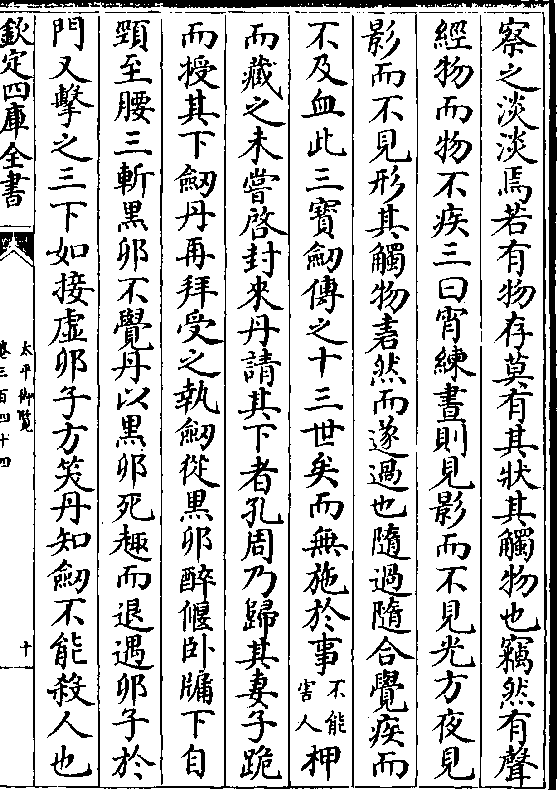 察之淡淡焉若有物存莫有其狀其觸物也竊然有聲
經物而物不疾三曰宵練晝則見影而不見光方夜見
影而不見形其觸物騞然而遂過也隨過隨合覺疾而
不及血此三寳劒傳之十三世矣而無施於事不能害人柙
而藏之未嘗啓封來丹請其下者孔周乃歸其妻子跪
而授其下劒丹再拜受之執劒從黑卵醉偃卧牖下自
頸至腰三斬黒卵不覺丹以黒卵死趣而退遇卵子於
門又擊之三下如接虚卵子方笑丹知劒不能殺人也
欽定四庫全書
太平御覽
卷三百四十四
十